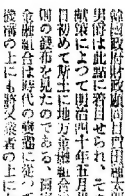 韓國政府財政顧問目賀田種太
男爵は此點に着目せられ、そ
獻策によつて明治四十年五月
日初めて半土に地方金融組合
則の發布を見たのである、爾
金融組合は時代の變遷に從つ
機構の上にも將又業者の上に